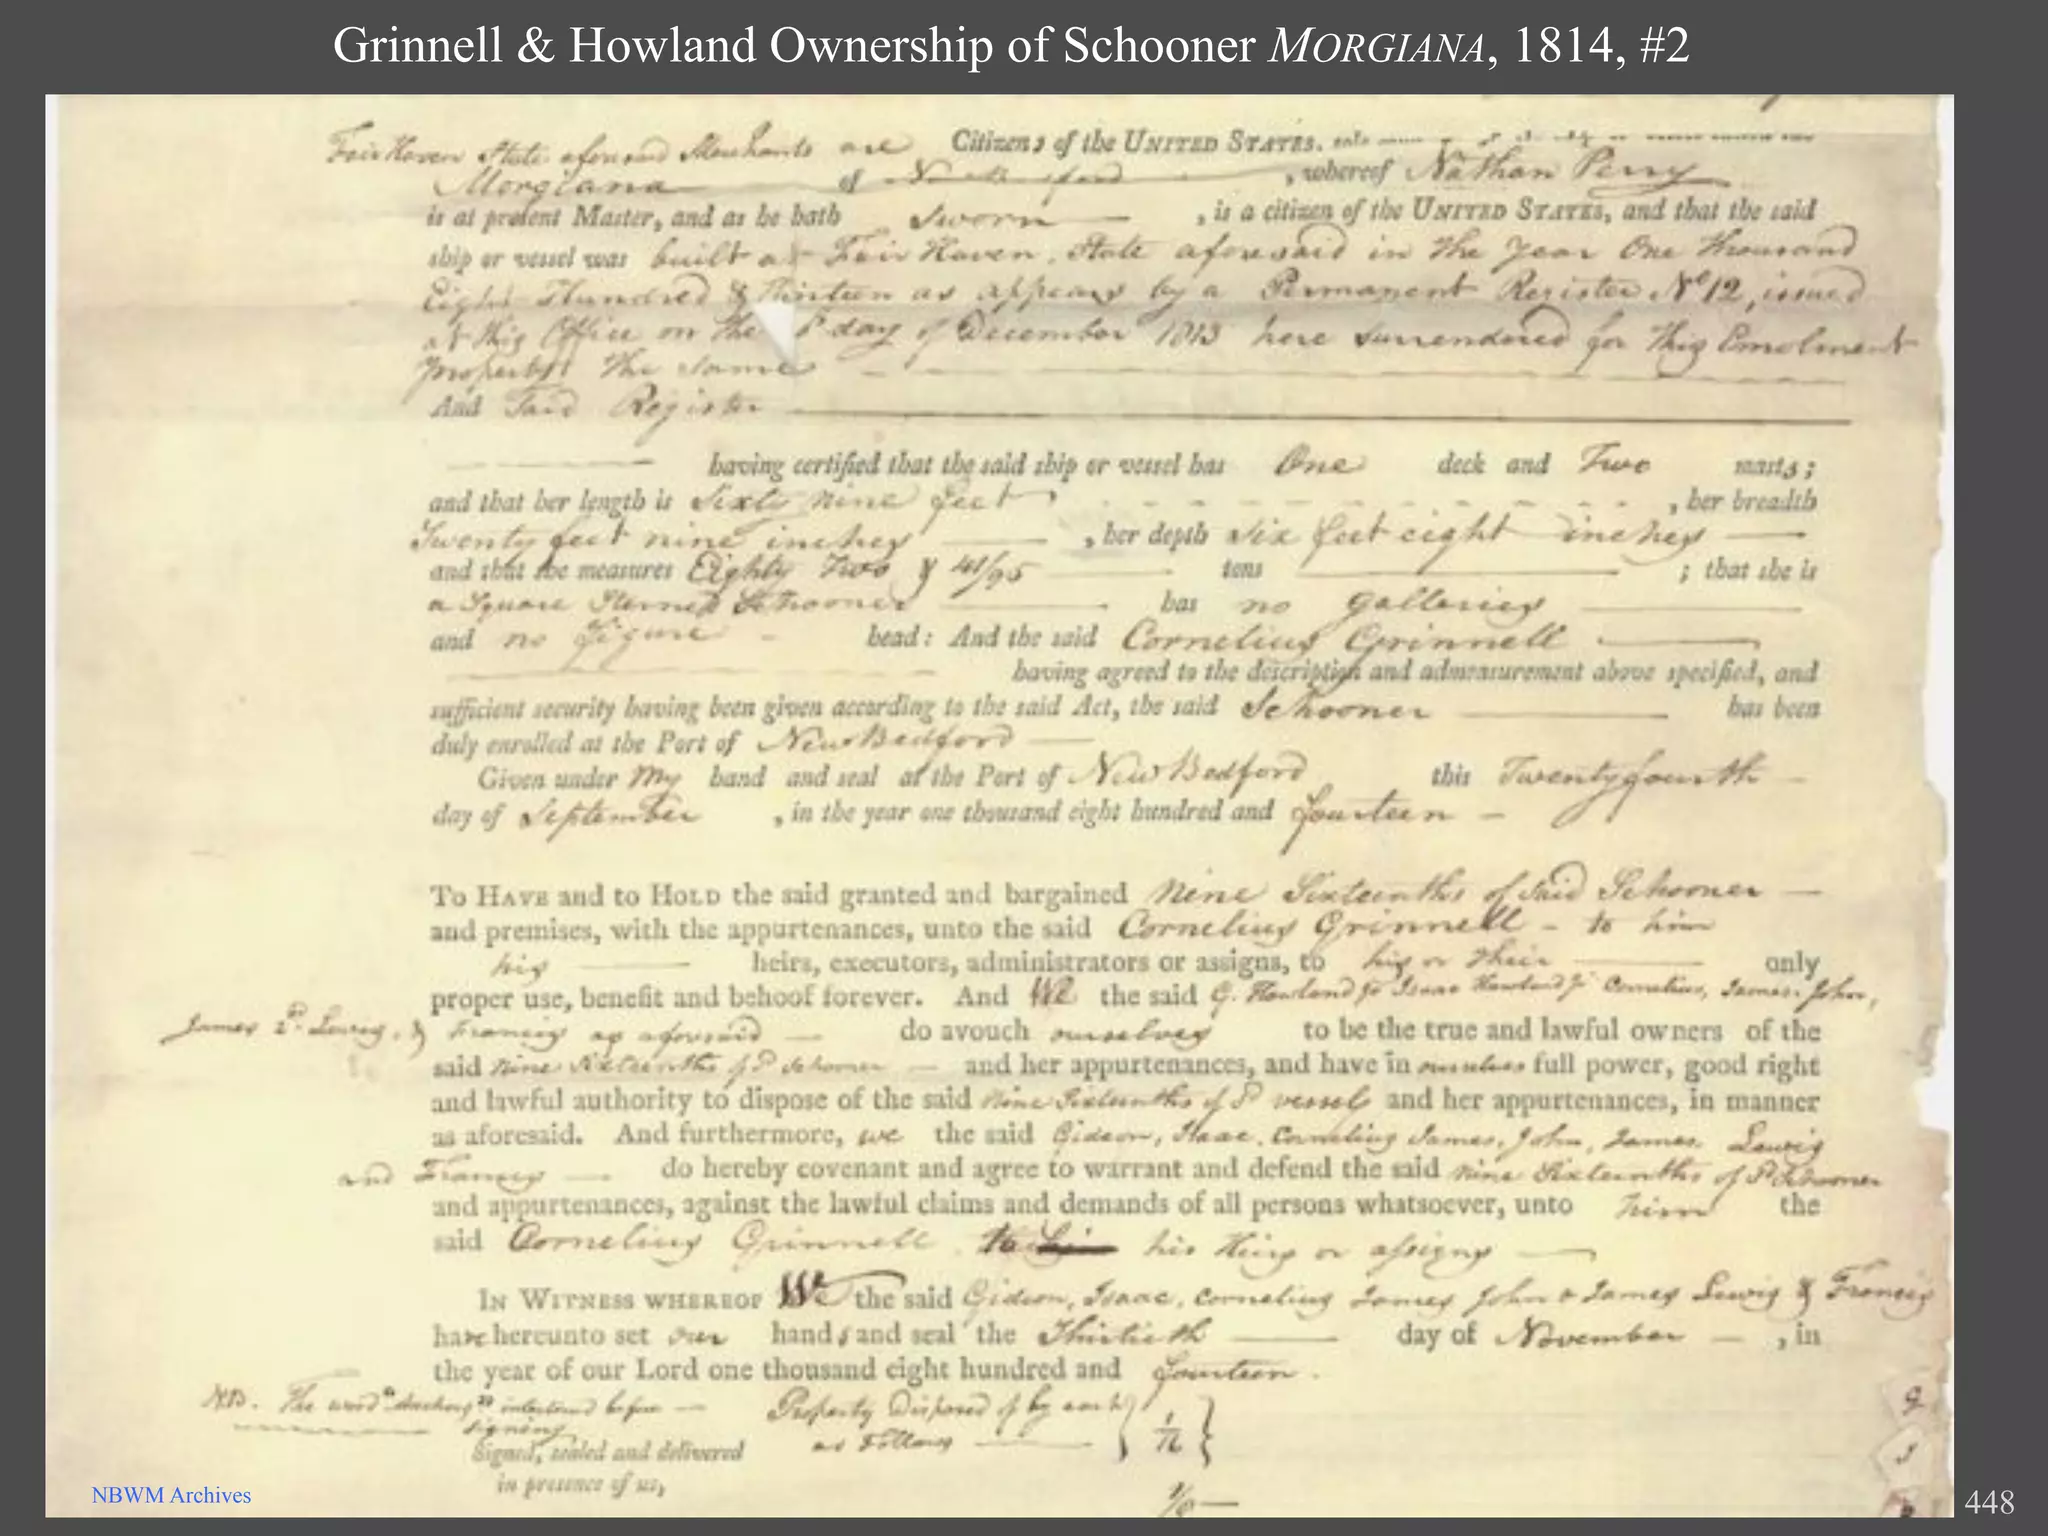 Grinnell & Howland Ownership of Schooner MORGIANA, 1814, #2
Fair Haven State aforesaid Merchants are Citizens of the UNITED STATES.
Morgiana of New Bedford, whereof Nathan Perry
is at present Master, and as he hath Sworn, is a citizen of the UNITED STATES, and that the said
ship or vessel was built at Fair Haven, State aforesaid in the Year One thousand
Eight Hundred & Thirteen as appears by a Permanent Register No 12, issued
at this Office on the day of December 1813 here surrendered for this Enrolment
Property the same
And Said Register
having certified that the said ship or vessel has One deck and Two masts;
and that her length is Sixty nine feet, her breadth
Twenty feet nine inches, her depth Six feet eight inches
and that she measures Eighty Two & 41/95 tons; that she is
a Square Sterned Schooner has no Galleries
and no figure head: And the said Cornelius Grinnell
having agreed to the description and admeasurement above specified, and
sufficient security having been given according to the said Act, the said Schooner has been
duly enrolled at the Port of New Bedford
Given under My hand and seal at the Port of New Bedford this Twenty fourth
day of September, in the year one thousand eight hundred and fourteen
TO HAVE and to HOLD the said granted and bargained Nine Sixteenths of said Schooner
and premises, with the appurtenances, unto the said Cornelius Grinnell - to him
his heirs, executors, administrators or assigns, to his or their only
proper use, benefit and behoof forever. And We the said G. Howland Jr Isaac Howland Jr Cornelius, James, John,
James 2d. Lewis, & Francis as aforesaid do avouch ourselves to be the true and lawful owners of the
said Nine Sixteenths of Sd Schooner and her appurtenances, and have in ourselves full power, good right
and lawful authority to dispose of the said Nine Sixteenths of Sd vessel and her appurtenances, in manner
as aforesaid. And furthermore, we the said Gideon, Isaac, Cornelius James, John, James. Lewis
and Francis do hereby covenant and agree to warrant and defend the said Nine Sixteenths of Sd Schooner
and appurtenances, against the lawful claims and demands of all persons whatsoever, unto him the
said Cornelius Grinnell his Heirs or assigns
IN WITNESS WHEREOF We the said Gideon, Isaac, Cornelius James John & James Lewis & Francis
have hereunto set our hands and seal the Thirtieth day of November, in
the year of our Lord one thousand eight hundred and fourteen.
N.B. The word interlined before Property Disposed of by each
signing as Follows
Signed, sealed and delivered
in presence of us,
NBWM Archives
448